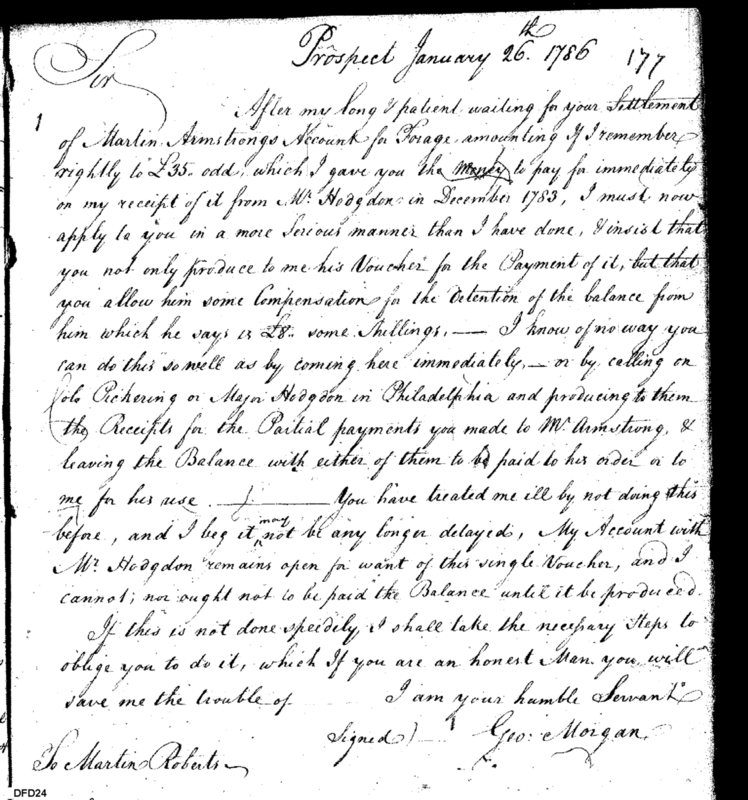 Prospect January 26.th 1786
177
Sir
1
After my long & patient waiting for your Settlement
of Martin Armstrongs Account for Forage, amounting If I remember
rightly to £35.. odd, which I gave you the Money to pay for immediately
on my receipt of it from Mr. Hodgdon in December 1783, I must now
apply to you in a more serious manner than I have done, & insist that
you not only produce to me his Voucher for the Payment of it, but that
you allow him some Compensation for the Detention of the balance from
him which he says is £8.. some Shillings, — I know of no way you
can do this so well as by coming here immediately, — or by calling on
Colo Pickering or Major Hodgdon in Philadelphia and producing to them
the Receipts for the Partial payments you made to Mr. Armstrong, &
leaving the Balance with either of them to be paid to his order or to
me for his use — You have treated me ill by not doing this
before, and I beg it may not be any longer delayed, My Account with
Mr. Hodgdon remains open for want of this single Voucher, and I
cannot; nor ought not to be paid the Balance until it be produced.
If this is not done speedily, I shall take the necessary Steps to
oblige you to do it, which If you are an honest Man you will
save me the trouble of I am your humble Servant
Signed) — Geo: Morgan
To Martin Roberts
DFD24